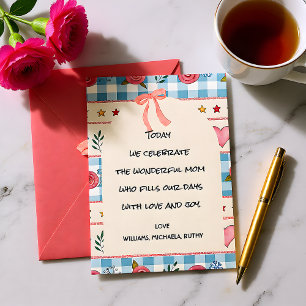 TODAY
WE CELEBRATE
THE WONDERFUL MOM
WHO FILLS OUR DAYS
WITH LOVE AND JOY.
LOVE
WILLIAMS, MICHAELA, RUTHY